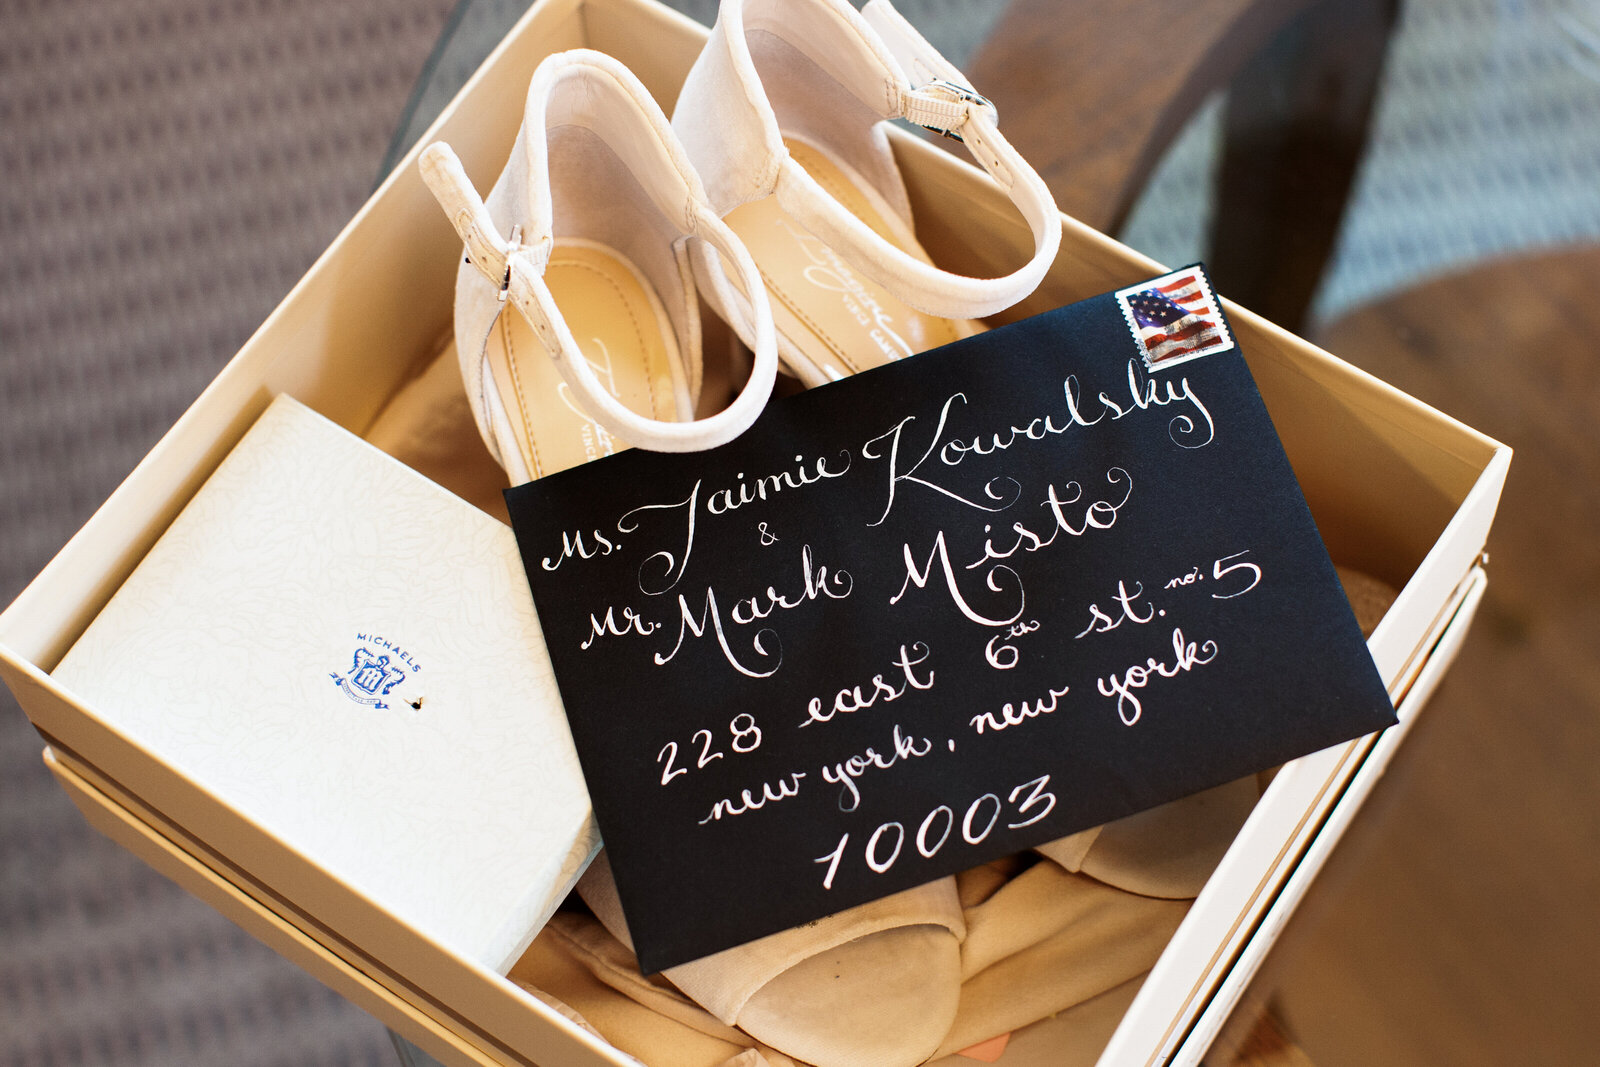 Ms. Jaimie Kowalsky
&
Mr. Mark Misto
228 east 6th st. no. 5
new york, new york
10003
MICHAELS
Imagine
VINCE CAMUTO
VINCE